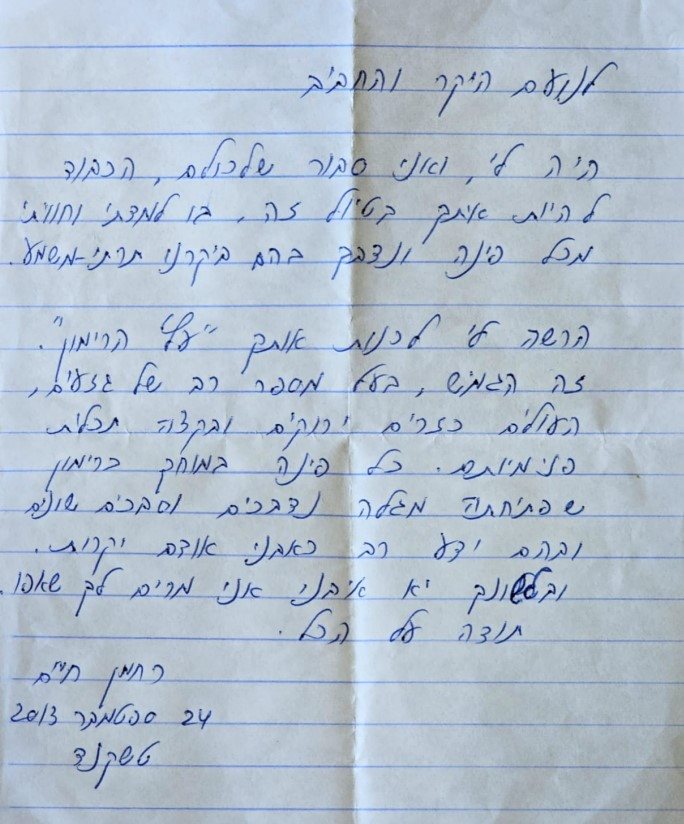 לנועם היקר והחביב
היה לי, ואני סבור שלכולם, הכבוד
להיות איתך בטיול זה, בו למדתי וחוויתי
מכל פינה ונדבך בהם ביקרנו תרתי-משמע.
הרשה לי לכנות אותך "עץ הרימון".
זה הגמיש, בעל מספר רב של גזעים,
העולים כזרים ירוקים ובקצה תכלית
פנימיותם. כל פינה במוחך כרימון
שפתיחתה מגלה נדבכים וסבכים שונים
ובהם ידע רב כאבני אודם יקרות.
ובלשונך יא איבני אני מרים לך שאפו.
תודה על הכל.
רחמן חיים
24 ספטמבר 2013
טשקנד